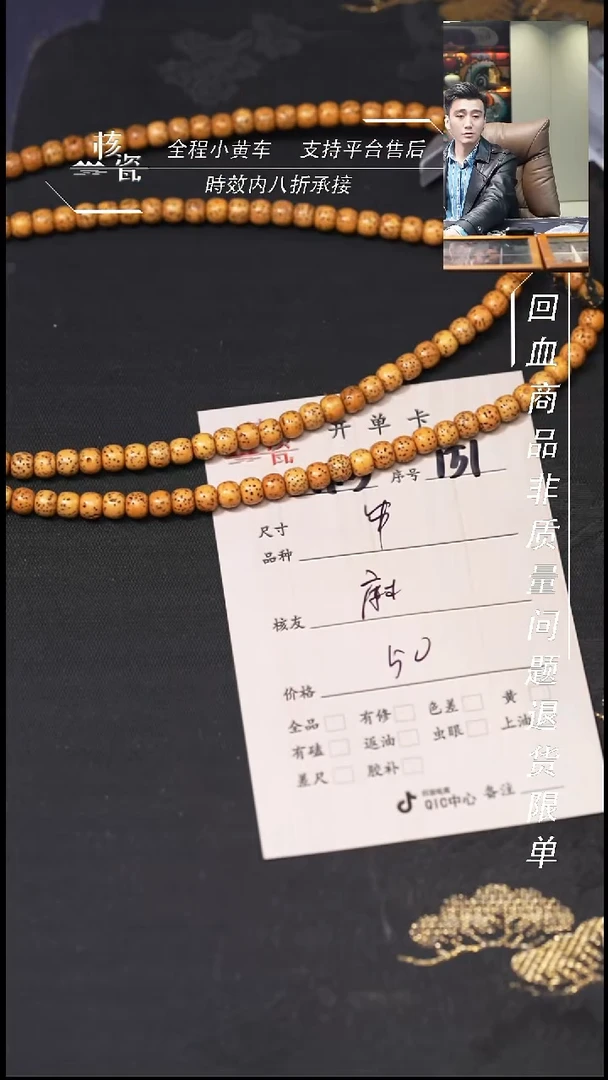 核
瓷
全程小黄车 支持平台售后
時效内八折承接
回血商品非质量问题退货限单
开单卡
瓷
序号 151
尺寸
品种
核友
50
价格
全品 有修 色差 黄
有磕 返油 虫眼 上油
差尺 胶补
QIC中心 备注